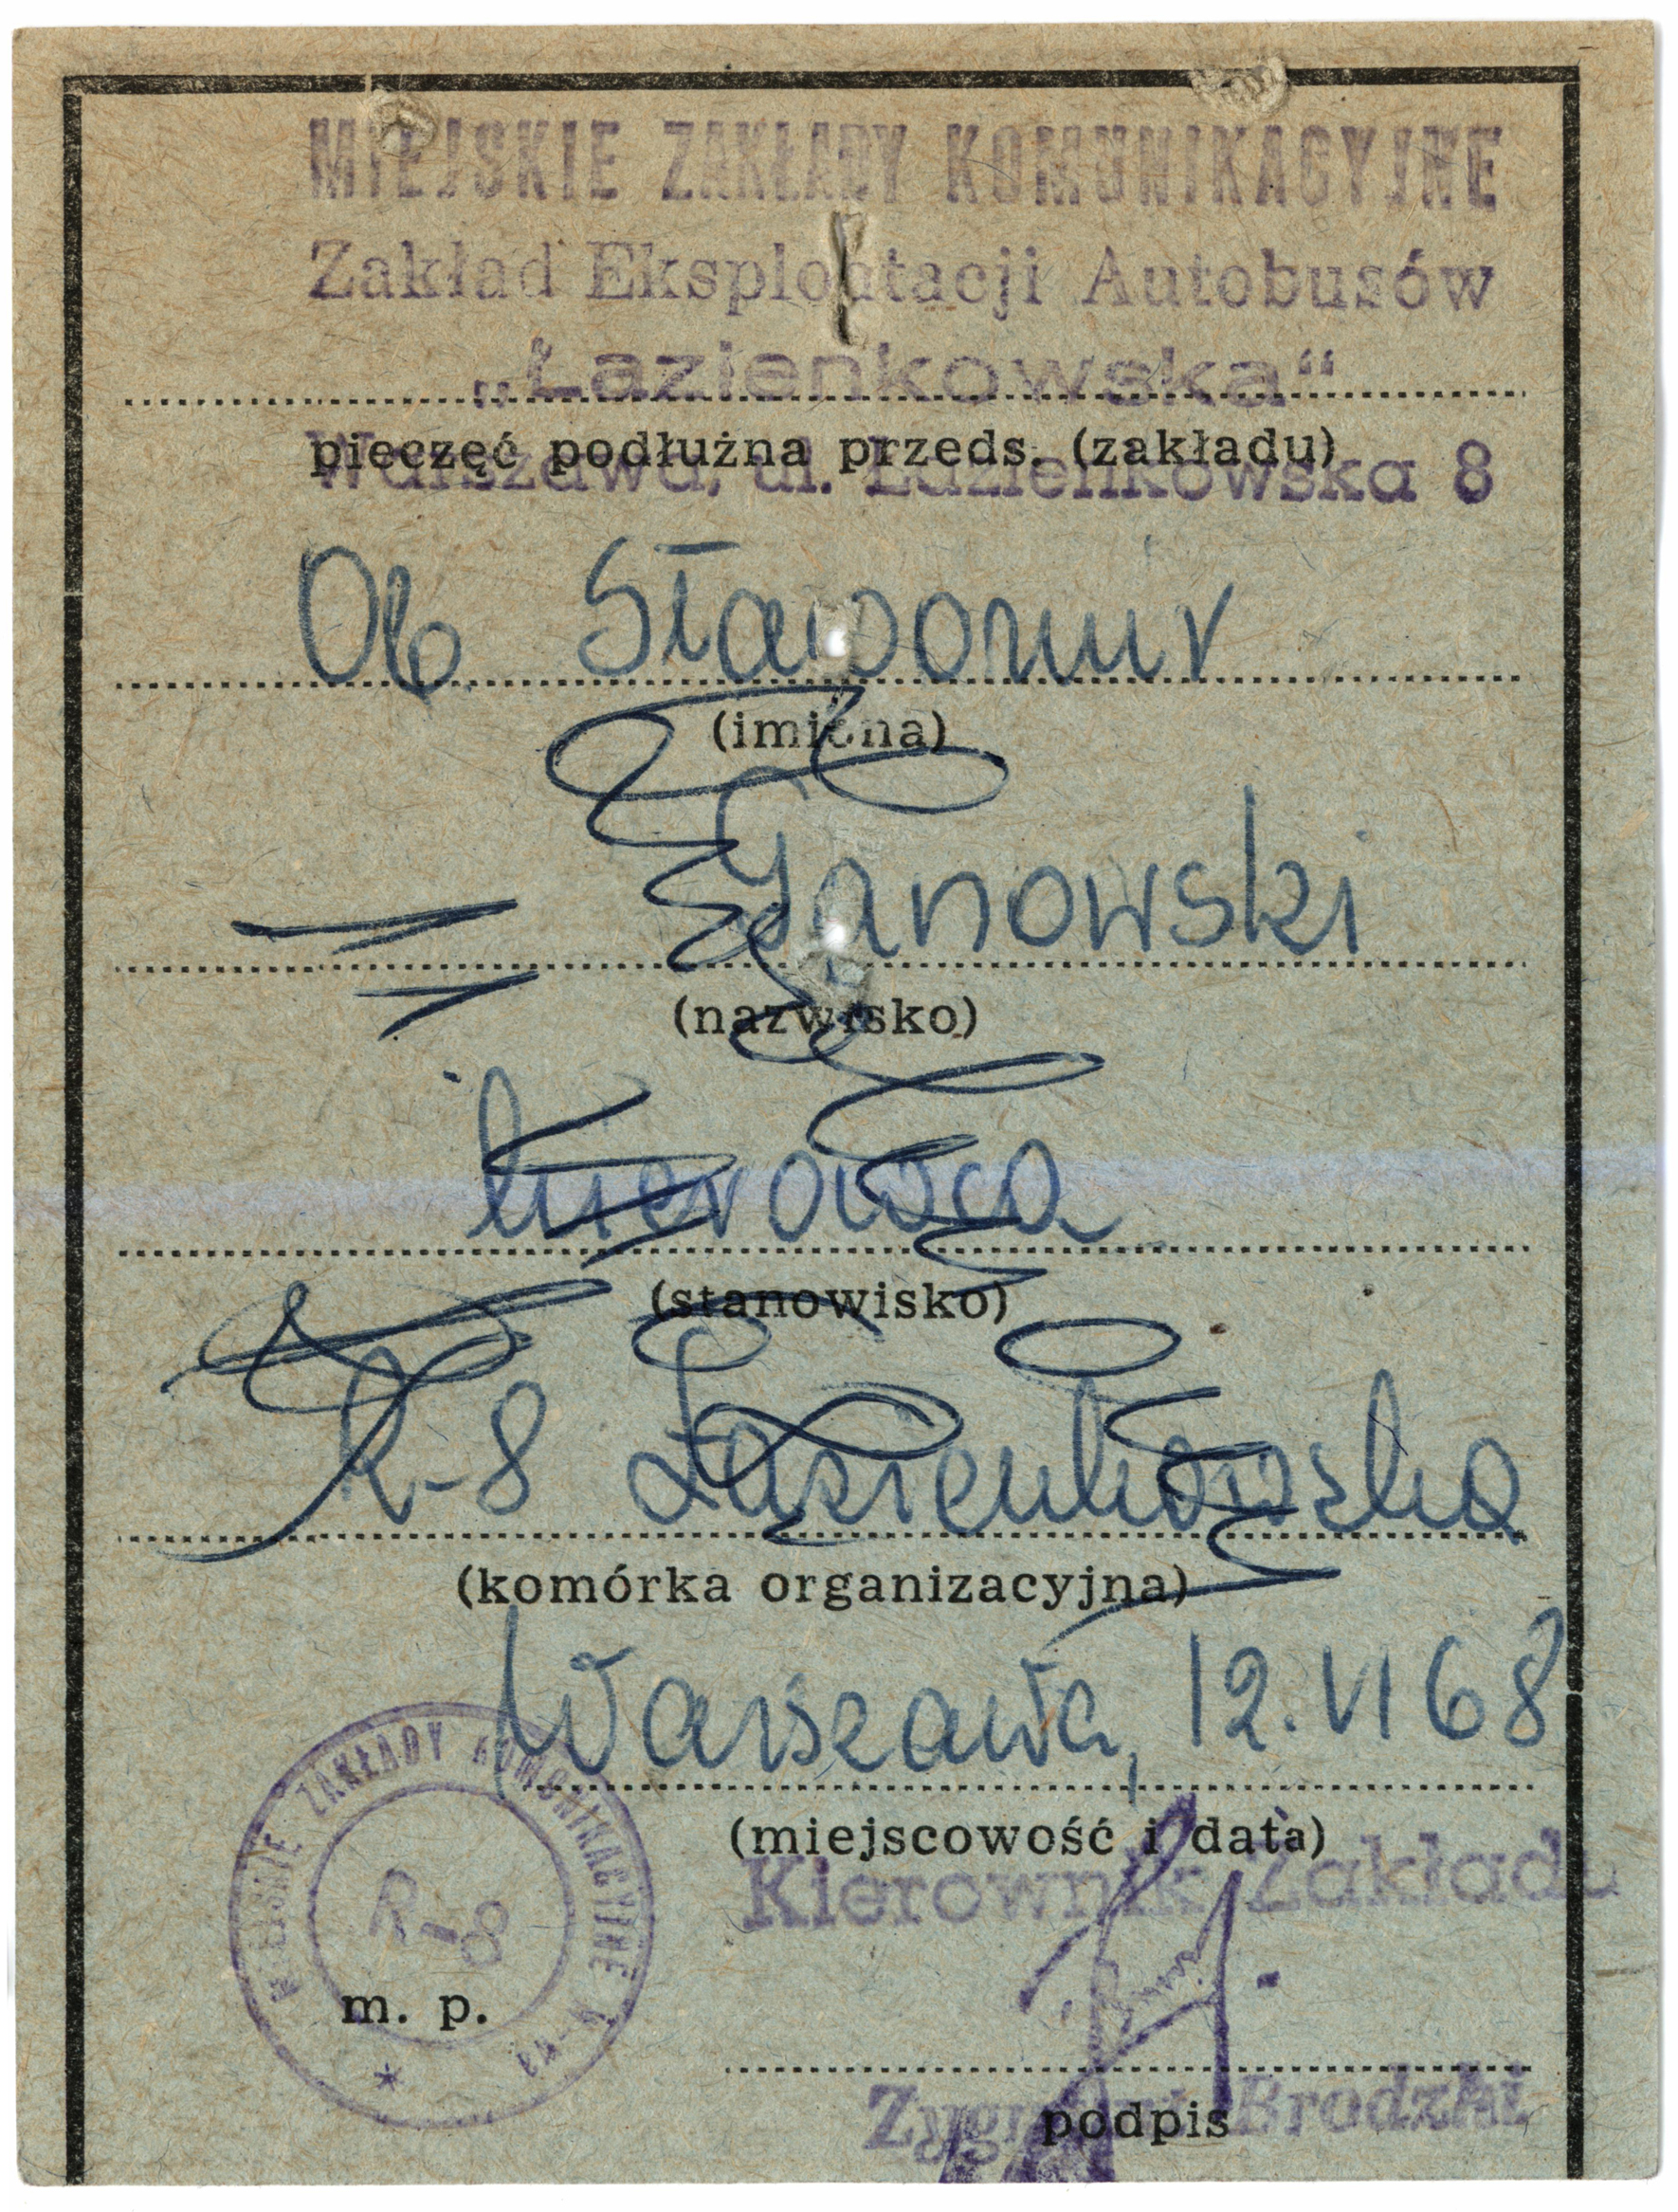 MIEJSKIE ZAKŁADY KOMUNIKACYJNE
Zakład Eksploatacji Autobusów
„Łazienkowska“
pieczęć podłużna przeds. (zakładu)
Warszawa, ul. Łazienkowska 8
Ob. Sławomir
(imiona)
Janowski
(nazwisko)
kierowca
(stanowisko)
R-8 Łazienkowska
(komórka organizacyjna)
Warszawa, 12.VI 68
(miejscowość i data)
MIEJSKIE ZAKŁADY KOMUNIKACYJNE
R-8
m. p.
Kierownik Zakładu
Brodzki
podpis